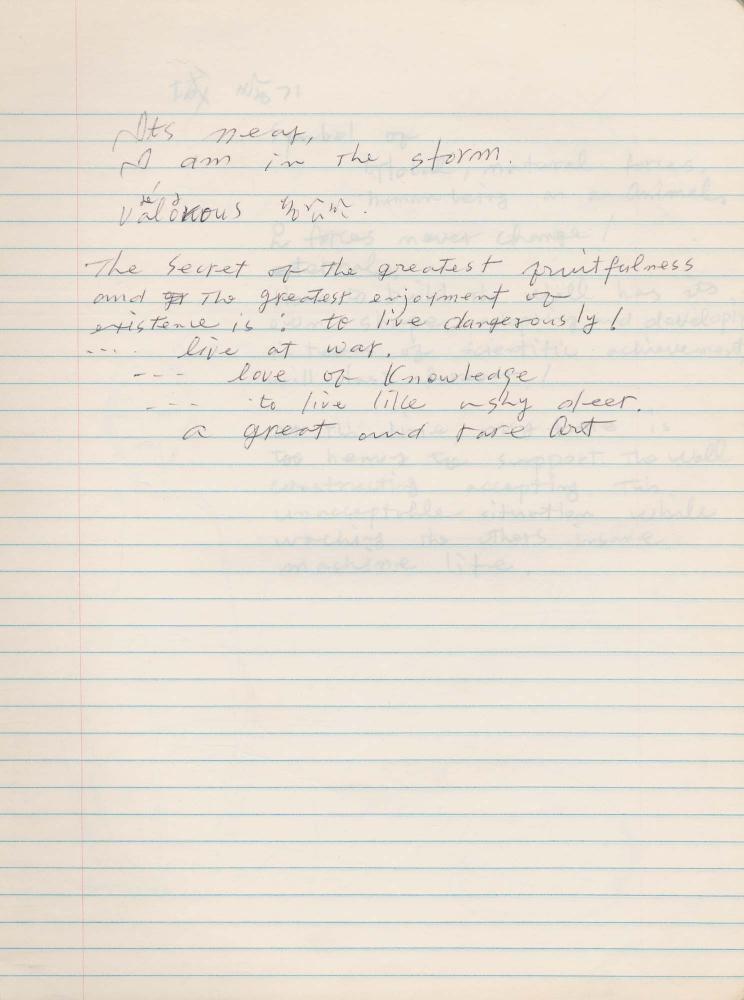 Its near,
I am in the storm.
valorous
The Secret of the greatest fruitfulness
and The greatest enjoyment of
existence is : to live dangerously!
.... live at war.
--- love of Knowledge
--- to live like a shy deer.
a great and rare Art